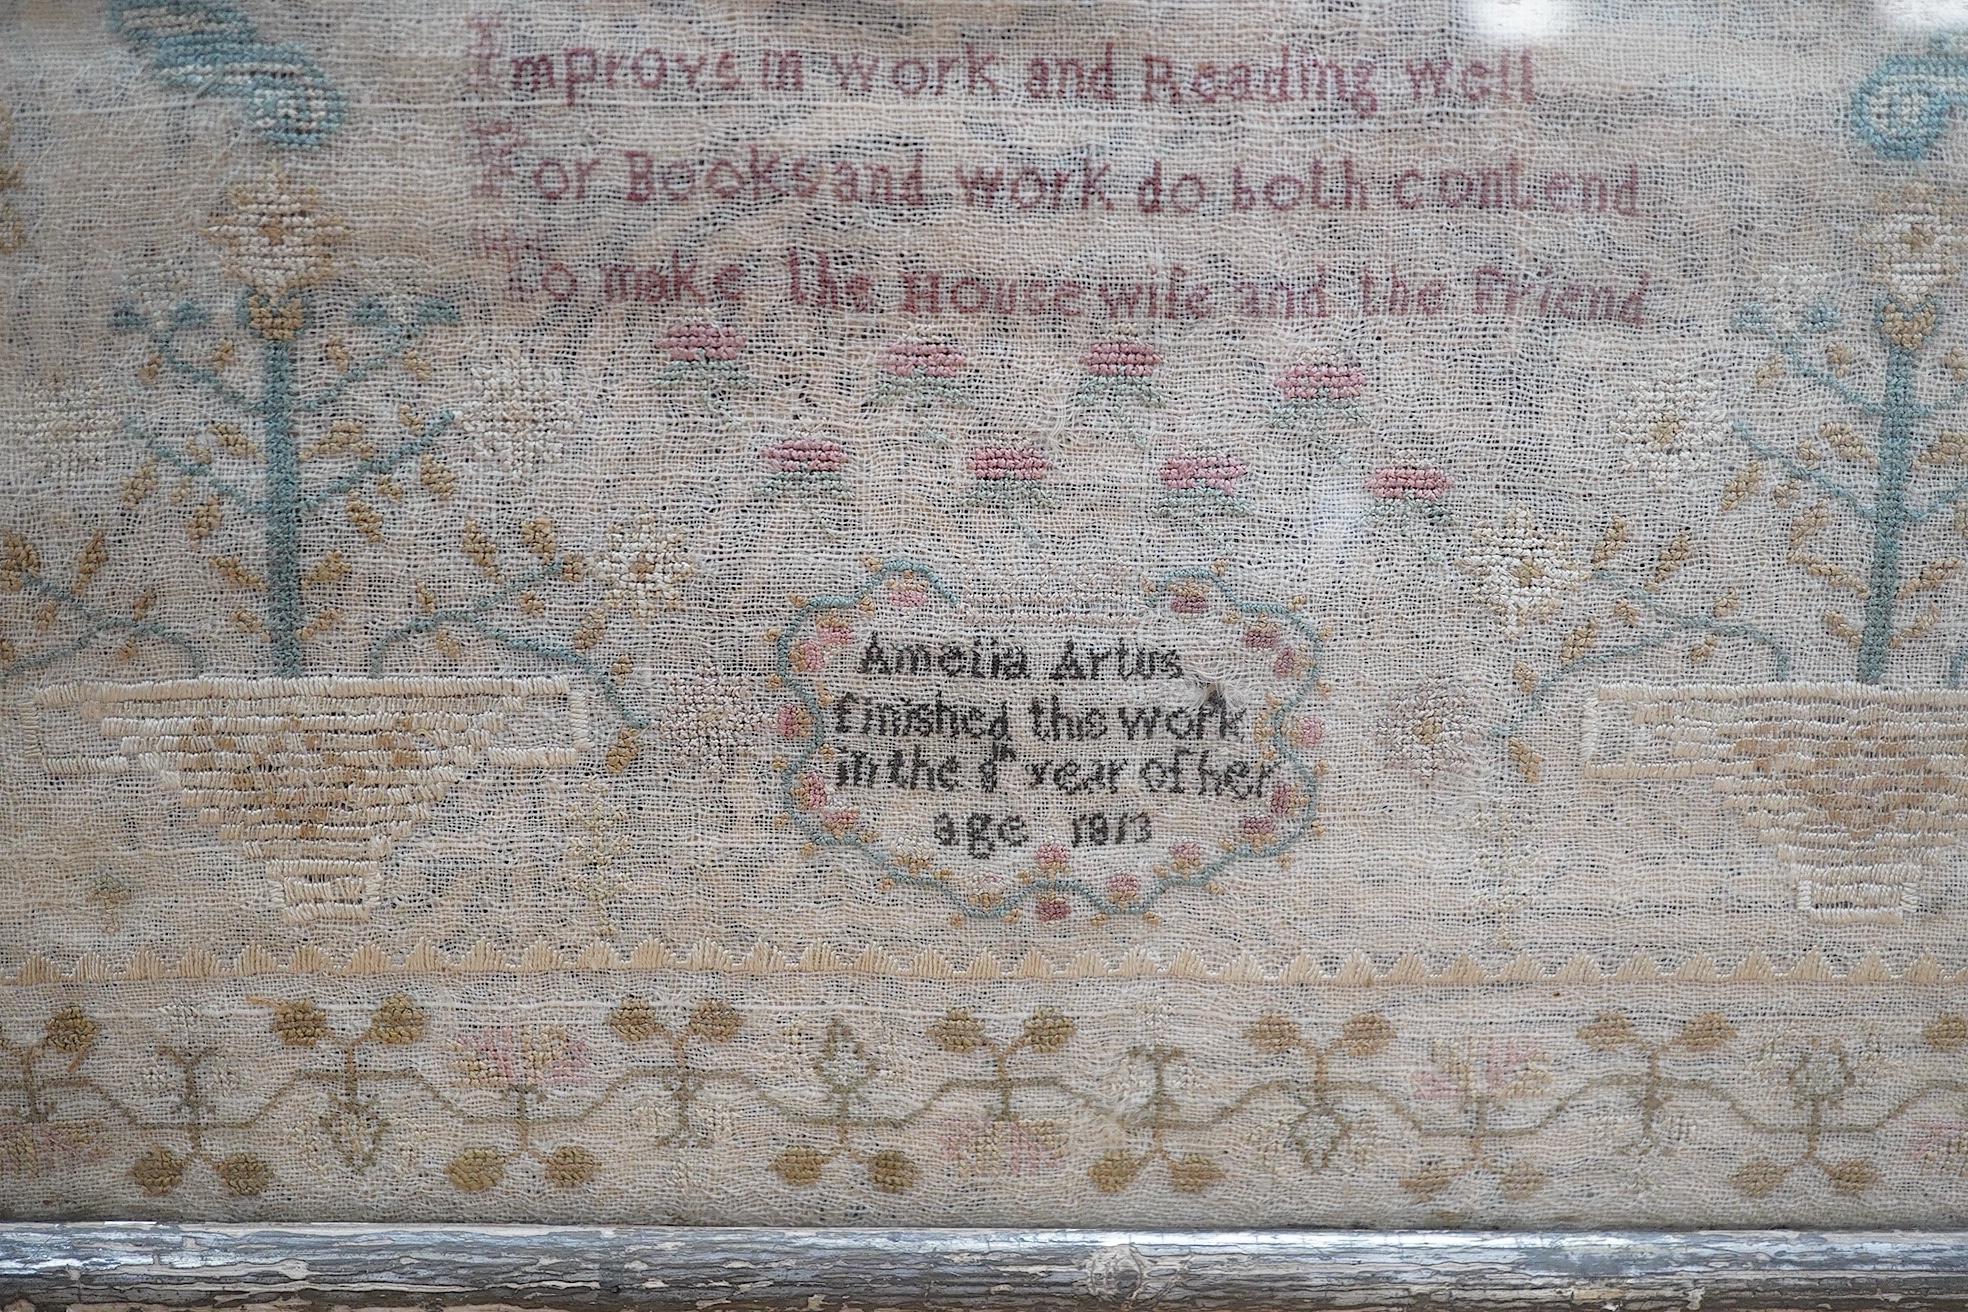 Improve in work and Reading well
For Books and work do both contend
To make the House wife and the Friend
Amelia Artus
finished this work
in the 8th year of her
age 1813